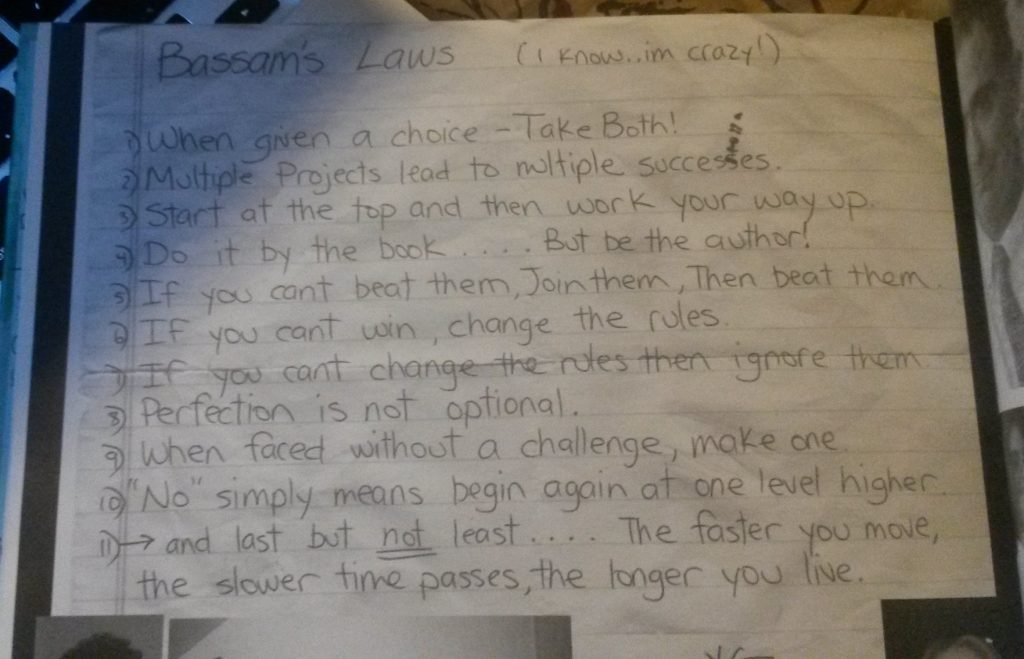 Bassam's Laws (I know..im crazy!)
1) When given a choice - Take Both!
2) Multiple Projects lead to multiple successes.
3) Start at the top and then work your way up.
4) Do it by the book .... But be the author!
5) If you cant beat them, Join them, Then beat them.
6) If you cant win, change the rules.
7) If you cant change the rules then ignore them.
8) Perfection is not optional.
9) When faced without a challenge, make one.
10) "No" simply means begin again at one level higher.
11) → and last but not least.... The faster you move,
the slower time passes, the longer you live.